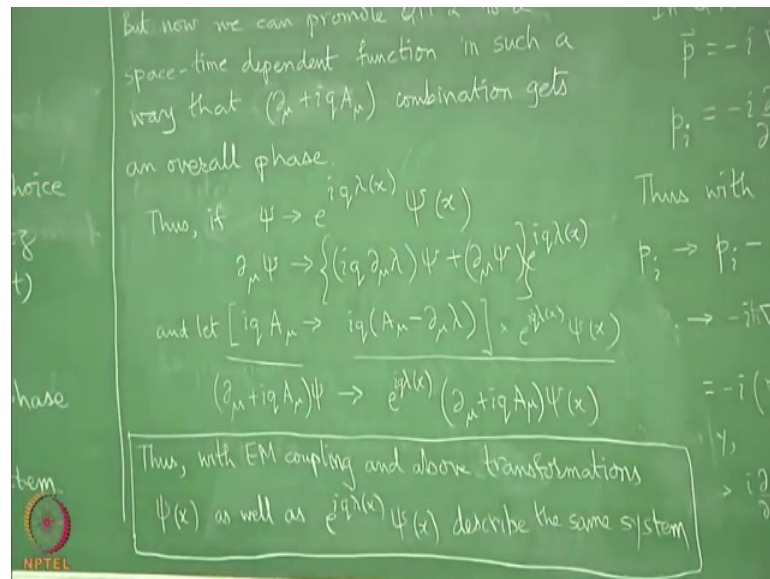 But now we can promote
space-time dependent function in such a
way that (∂_μ + iqA_μ) combination gets
an overall phase.
Thus, if ψ → e^{iqλ(x)} ψ(x)
∂_μ ψ → {(iq ∂_μ λ) ψ + (∂_μ ψ)} e^{iqλ(x)}
and let [iq A_μ → iq(A_μ − ∂_μ λ)] × e^{iqλ(x)} ψ(x)
(∂_μ + iqA_μ)ψ → e^{iqλ(x)} (∂_μ + iqA_μ)ψ(x)
Thus, with EM coupling and above transformations
ψ(x) as well as e^{iqλ(x)} ψ(x) describe the same system
hoice
t)
hase
tem.
p⃗ = −i
p_i = −i ∂
Thus with
p_i → p_i −
→ −iħ∇
= −i(
y,
→ i∂
NPTEL